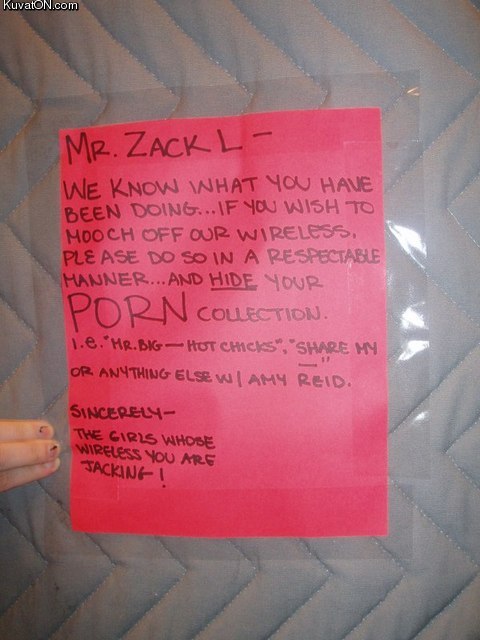 KuvatON.com
MR. ZACK L -
WE KNOW WHAT YOU HAVE
BEEN DOING...IF YOU WISH TO
MOOCH OFF OUR WIRELESS,
PLEASE DO SO IN A RESPECTABLE
MANNER...AND HIDE YOUR
PORN COLLECTION.
i.e. "MR. BIG - HOT CHICKS", "SHARE MY
—"
OR ANYTHING ELSE W/ AMY REID.
SINCERELY-
THE GIRLS WHOSE
WIRELESS YOU ARE
JACKING!